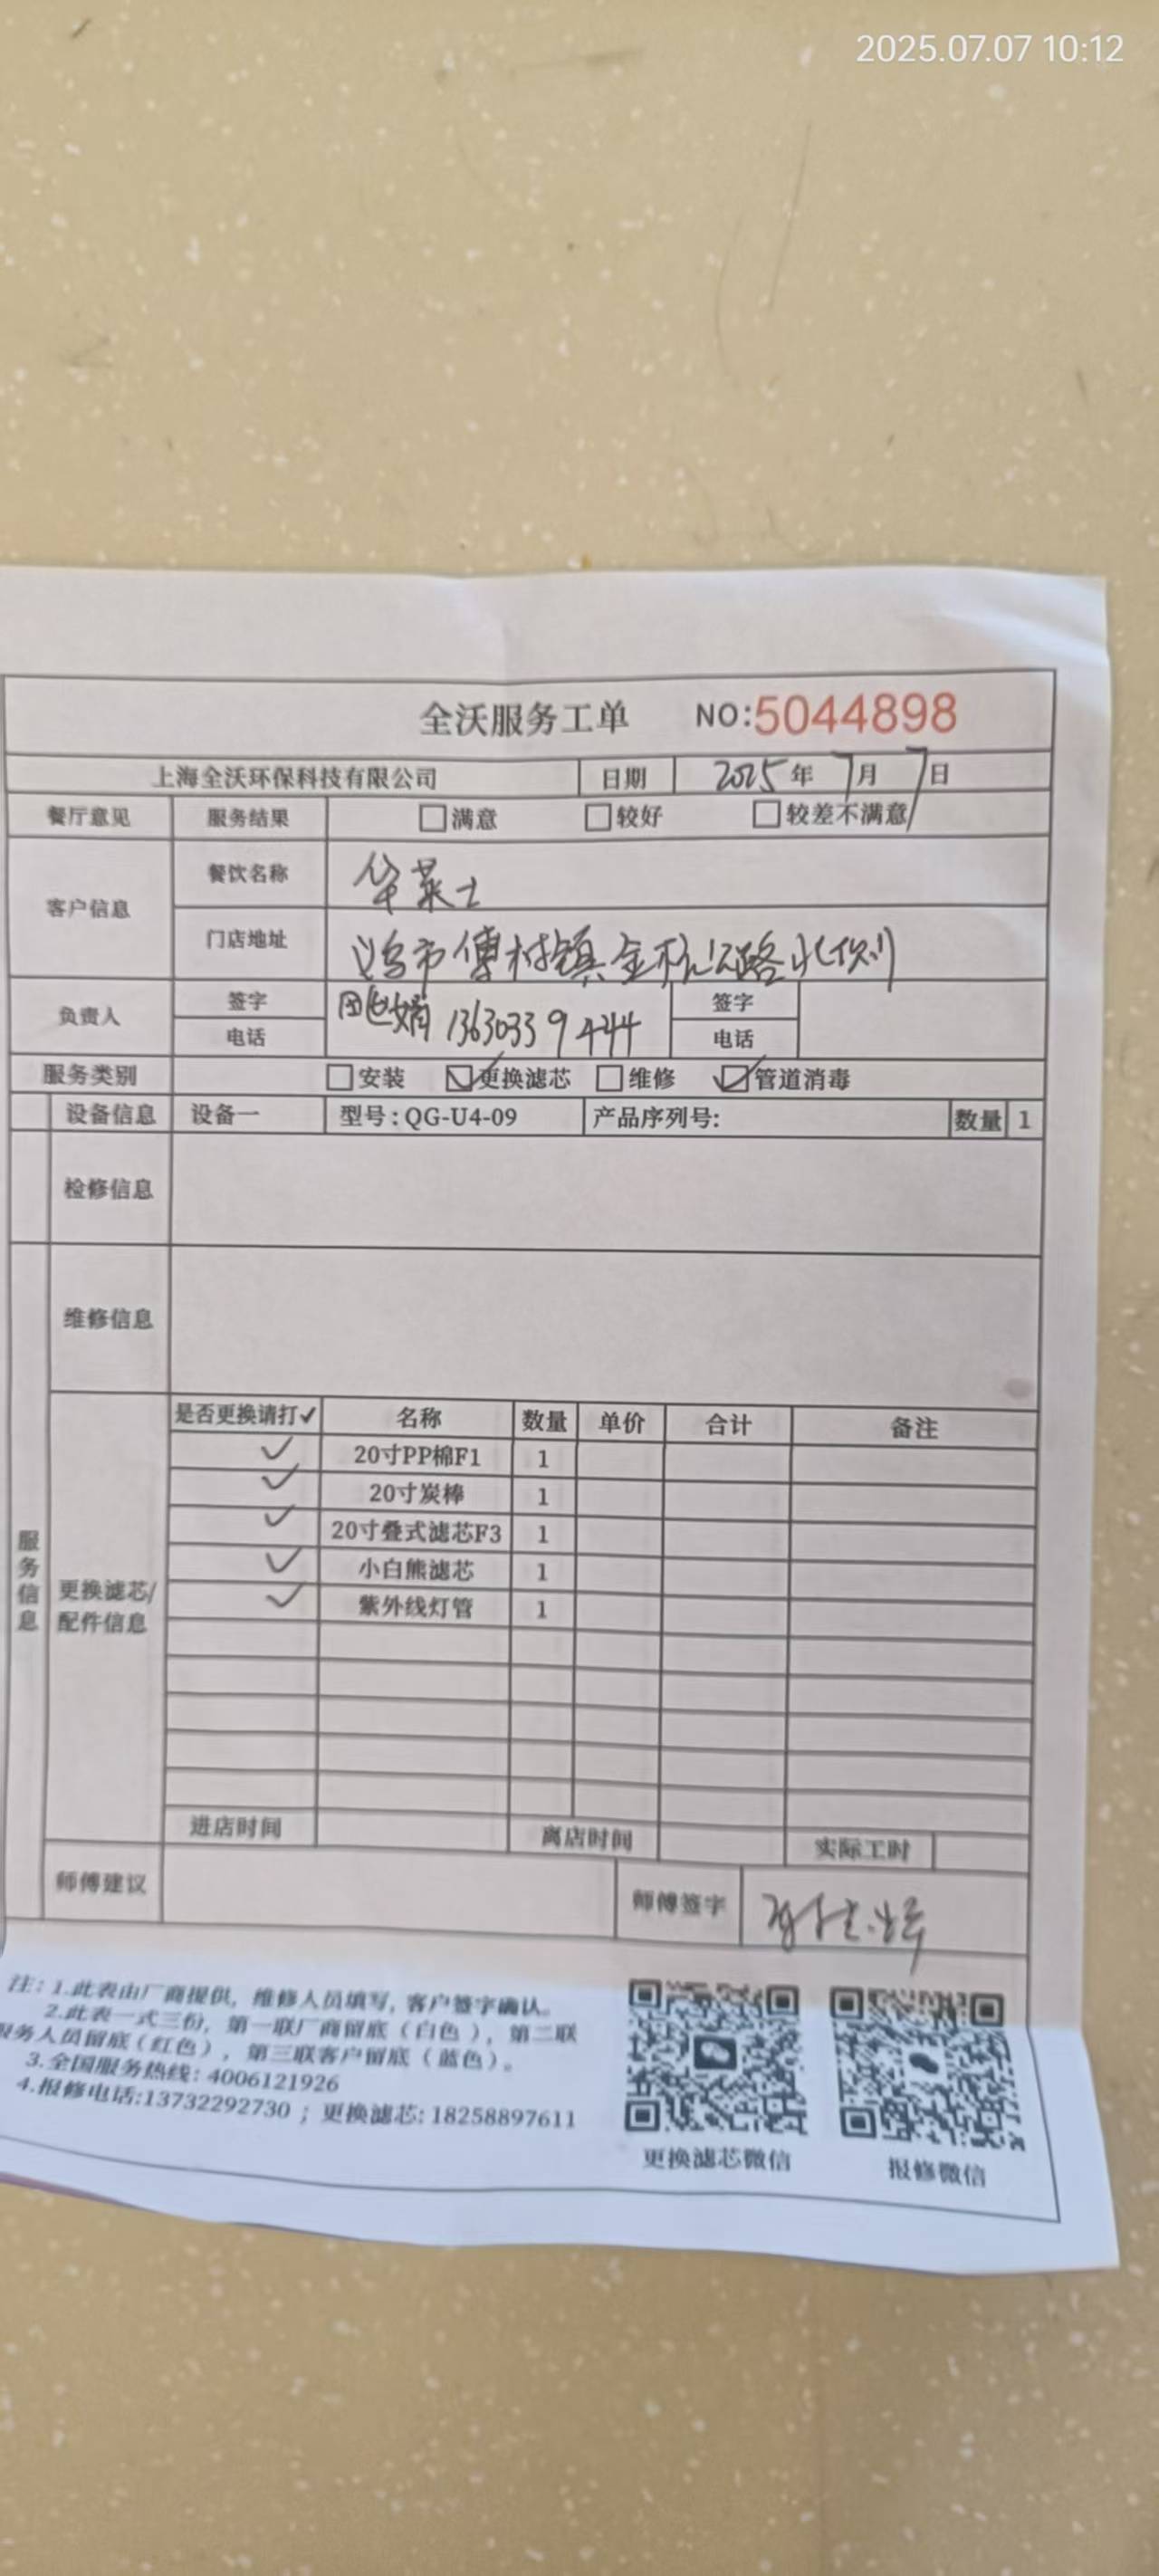 2025.07.07 10:12
全沃服务工单 NO:5044898
上海全沃环保科技有限公司 日期 2025年7月7日
餐厅意见 服务结果 满意 较好 较差不满意
客户信息 餐饮名称 华莱士
门店地址 义乌市傅村镇金 公路北侧
负责人 签字 签字
电话 13630339444 电话
服务类别 安装 更换滤芯 维修 管道消毒
设备信息 设备一 型号:QG-U4-09 产品序列号: 数量 1
检修信息
维修信息
服务信息
更换滤芯/配件信息
是否更换请打✓ 名称 数量 单价 合计 备注
✓ 20寸PP棉F1 1
✓ 20寸炭棒 1
✓ 20寸叠式滤芯F3 1
✓ 小白熊滤芯 1
✓ 紫外线灯管 1
进店时间 离店时间 实际工时
师傅建议 师傅签字
注: 1.此表由厂商提供, 维修人员填写, 客户签字确认。
2.此表一式三份, 第一联厂商留底(白色), 第二联
服务人员留底(红色), 第三联客户留底(蓝色)。
3.全国服务热线: 4006121926
4.报修电话:13732292730 ; 更换滤芯: 18258897611
更换滤芯微信 报修微信